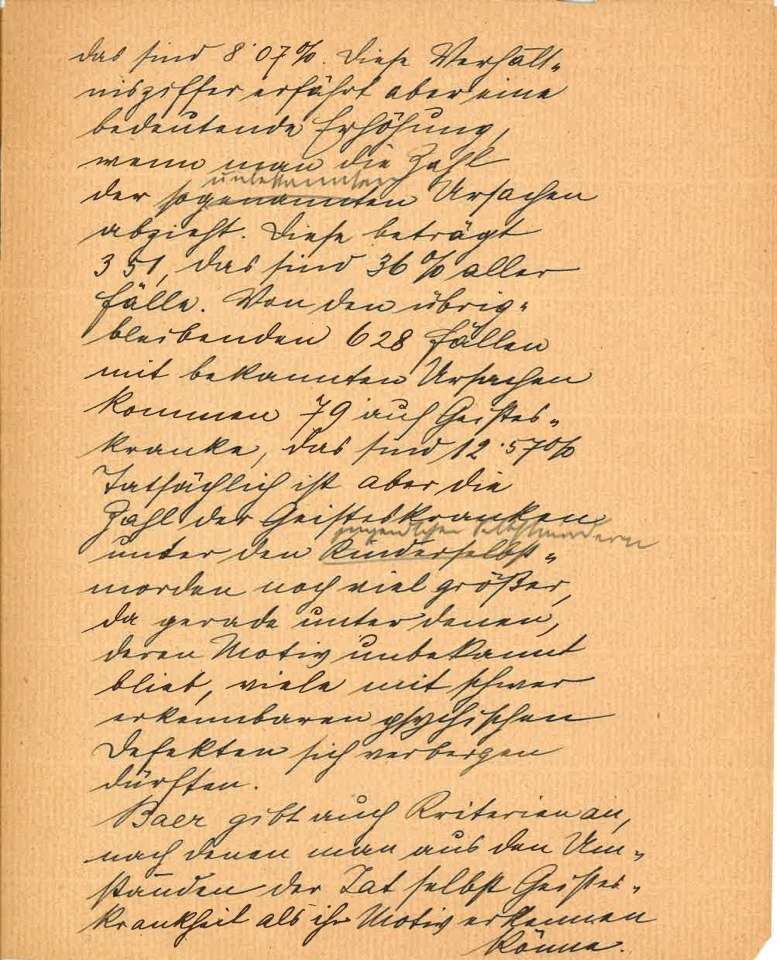 das sind 8·07%. Diese Verhält-
nisziffer erfährt aber eine
bedeutende Erhöhung,
wenn man die Zahl
unbekannten
der sogenannten Ursachen
abzieht. Diese beträgt
351, das sind 36% aller
Fälle. Von den übrig-
bleibenden 628 Fällen
mit bekannten Ursachen
kommen 79 auf Geistes-
kranke, das sind 12·57%
Tatsächlich ist aber die
Zahl der Geisteskranken
jugendlichen Selbstmördern
unter den Kinderselbst-
morden noch viel größer,
da gerade unter denen,
deren Motiv unbekannt
blieb, viele mit schwer
erkennbaren psychischen
Defekten sich verbergen
dürften.
Baer gibt auch Kriterien an,
nach denen man aus den Um-
ständen der Tat selbst Geistes-
krankheit als ihr Motiv erkennen
könne.